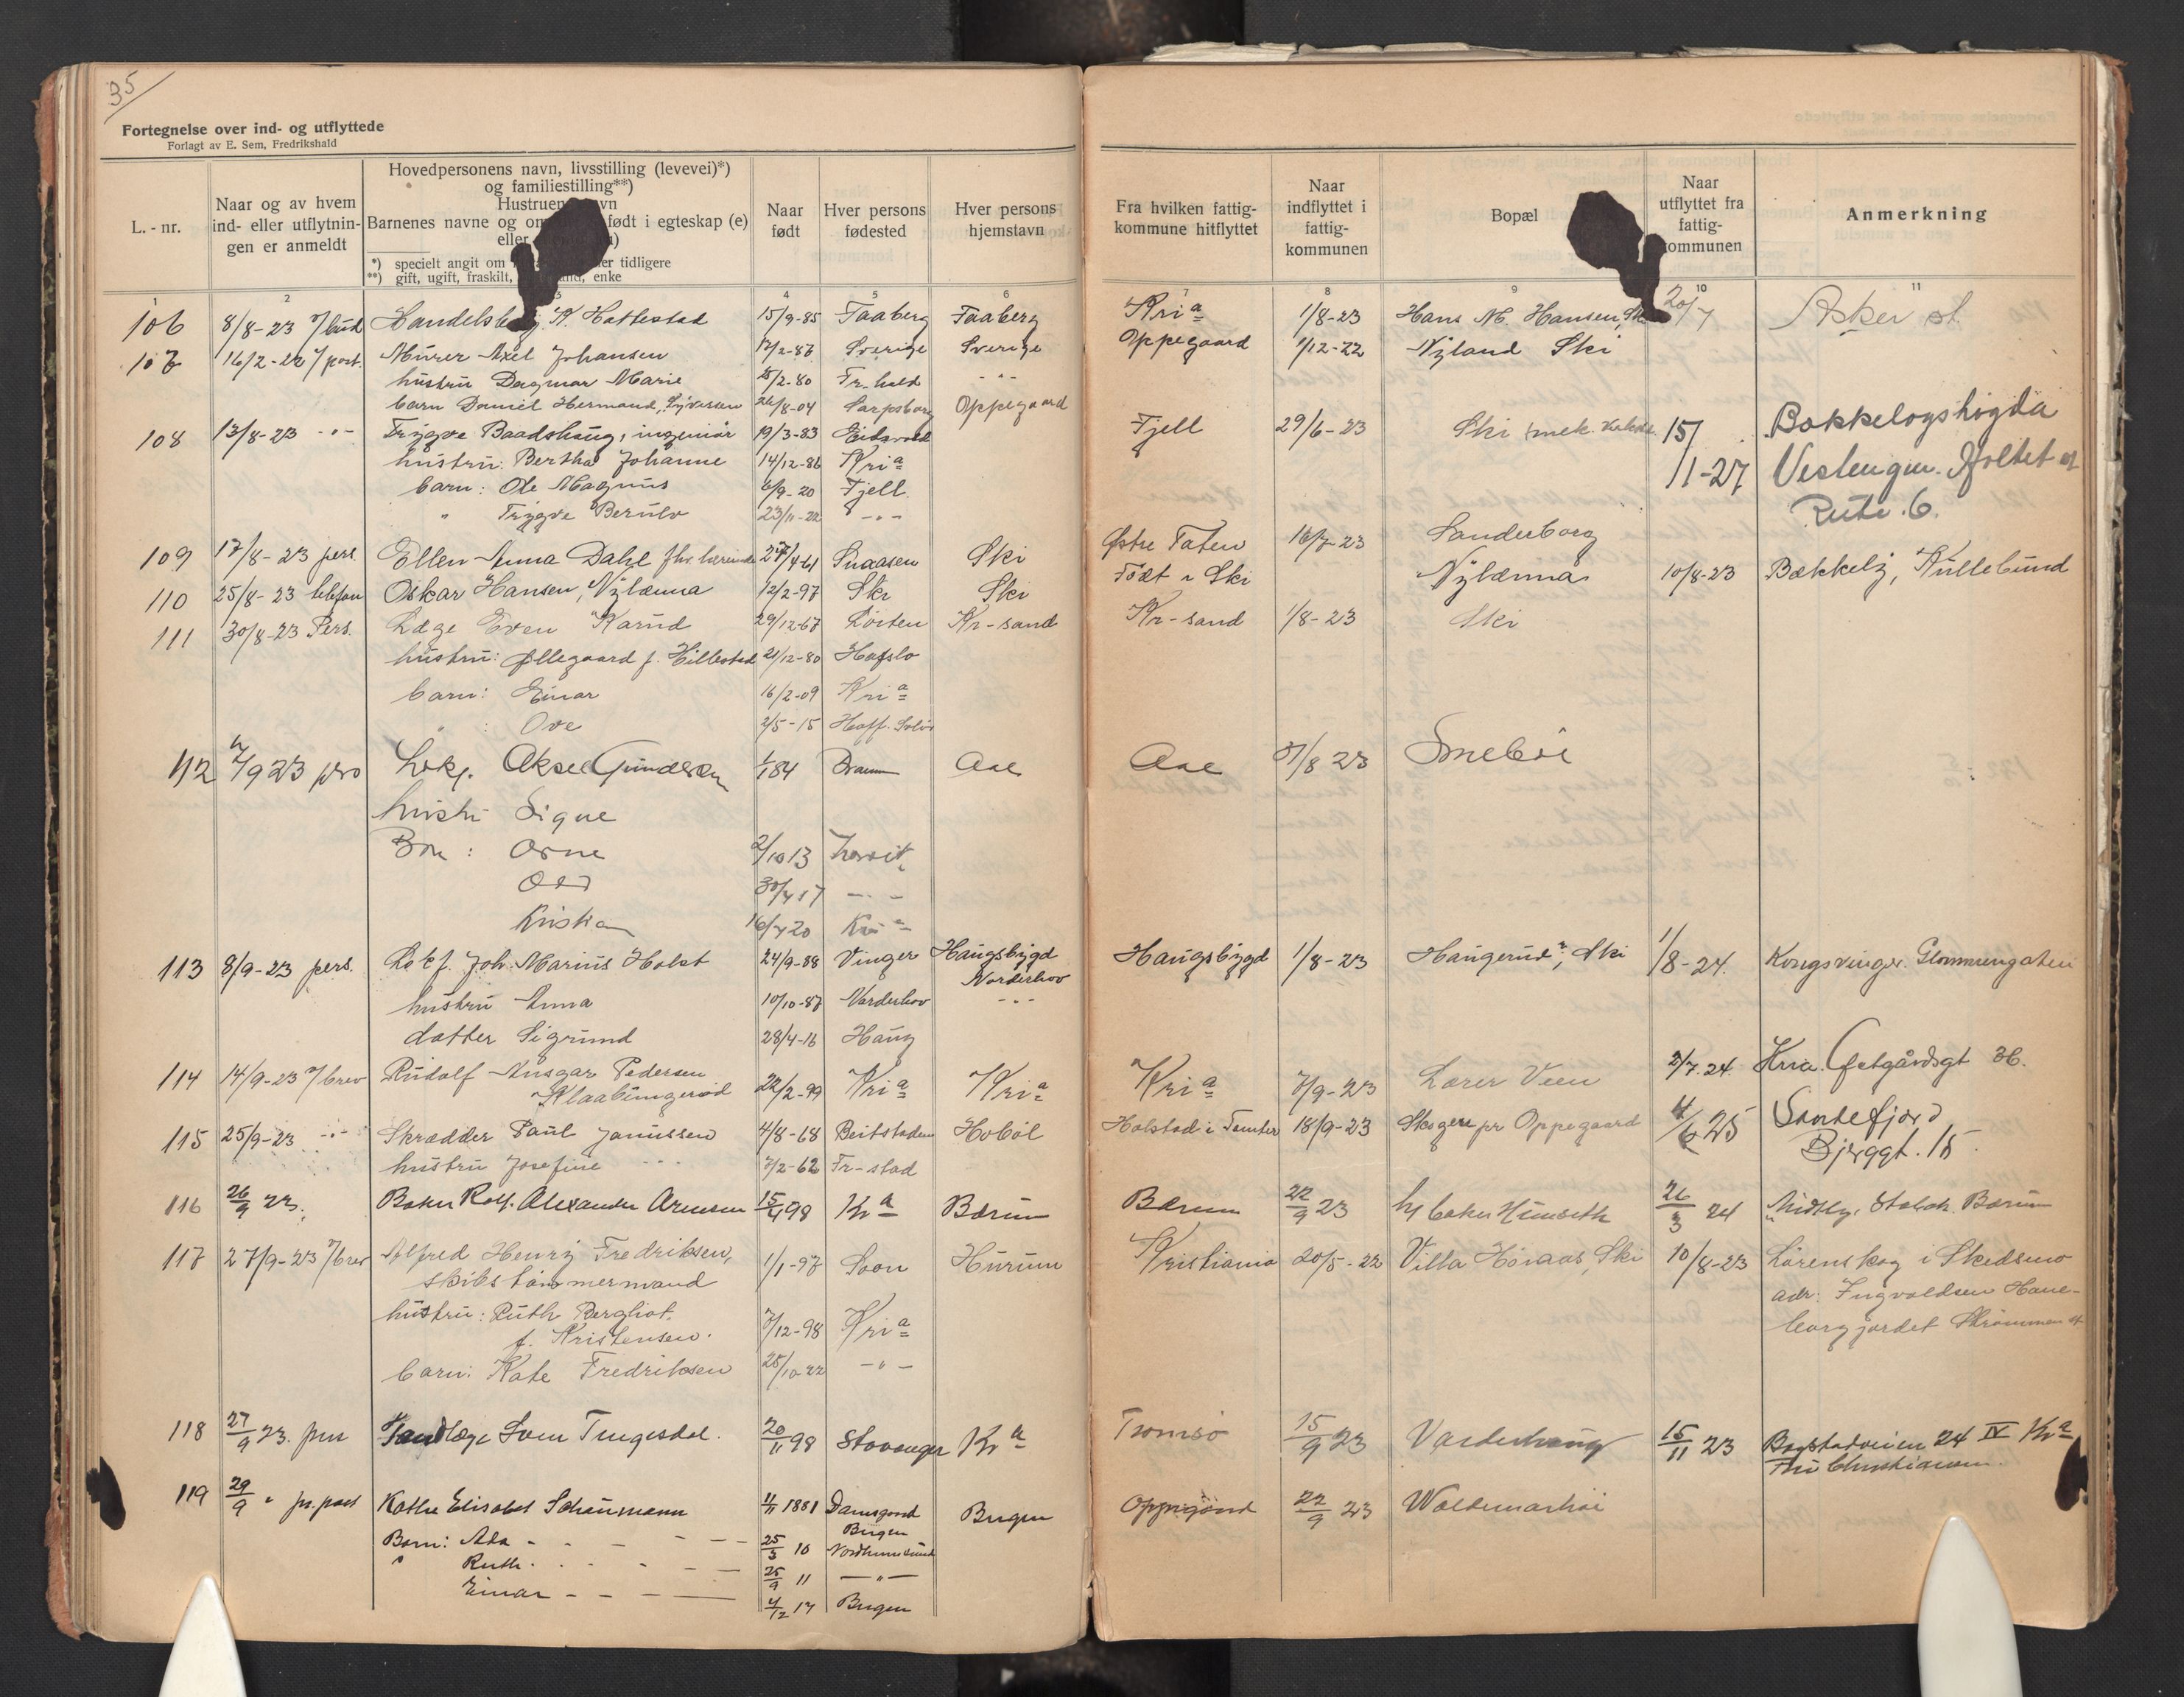 35
Fortegnelse over ind- og utflyttede
Forlagt av E. Sem, Fredrikshald
L.-nr.
Naar og av hvem ind- eller utflytningen er anmeldt
Hovedpersonens navn, livsstilling (levevei)*)
og familiestilling**)
Hustruens navn
Barnenes navne og om født i egteskap (e)
eller
*) specielt angit om eller tidligere
**) gift, ugift, fraskilt, enke
Naar født
Hver persons fødested
Hver persons hjemstavn
Fra hvilken fattigkommune hitflyttet
Naar indflyttet i fattigkommunen
Bopæl
Naar utflyttet fra fattigkommunen
Anmerkning
1 2 3 4 5 6 7 8 9 10 11
106 8/8-23 Handelsb. K. Hattestad 15/9-85 Faaberg Faaberg Kria 1/8-23 Hans M. Hansen, Ski 20/7 Asker st.
107 16/2-22 post. Murer Axel Johansen 12/2-87 Sverige Sverige Oppegaard 1/12-22 Nyland Ski
hustru Dagmar Marie 15/2-80 Fr-hald -"-
barn Daniel Hermand, Syversen 24/8-04 Sarpsborg Oppegaard
108 13/8-23 -"- Trygve Baadshaug, ingeniør 19/3-83 Eidsvold Fjell 29/6-23 Ski mek. 15/1-27 Bakkeløgshøgda
hustru: Bertha Johanne 14/12-86 Kria Vestengen. Holtet st
barn: Ole Magnus 6/9-20 Fjell Rute 6.
" Trygve Berulv 23/11-22 -"-
109 17/8-23 pers. Ellen Anna Dahl fhv. lærerinde 27/4-61 Snaasen Ski Østre Toten 16/7-23 Sanderborg
110 25/8-23 telefon Oskar Hansen, Nylænna 12/2-97 Ski Ski Født i Ski Nylænna 10/8-23 Bækkely, Kullebund
111 30/8-23 Pers. Læge Even Karud 29/12-67 Løiten Kr-sand Kr-sand 1/8-23 Ski
hustru: Øllegaard f. Hillestad 21/12-80 Hafslo
barn: Einar 16/2-09 Kria
" : Ove 2/5-15 Hoff. Solør
112 7/9 23 pers Lokf. Aksel Gundersen 1/1 84 Dramm Aal Aal 31/8 23 Snebøe
hustru Signe
Børn: Arne 2/10 13
Odd 30/7 17 -"-
Kristian 16/7 20 Kria
113 8/9-23 pers. Lokf. Joh. Marius Holst 24/9-88 Vinger Haugsbygd Norderhov Haugsbygd 1/8-23 Haugerud, Ski 1/8-24. Kongsvinger. Glommengaten
hustru Anna 10/10-87 Norderhov -"-
datter Sigrund 28/4-16 Haug
114 14/9-23 brev Rudolf Ansgar Pedersen Klaabungerød 22/2-99 Kria Kria Kria 7/9-23 Lærer Veen 2/7.24. Kria. 36.
115 25/9-23 -"- Skrædder Paul Janussen 4/8-68 Beitstaden Hobøl Holstad i Tomter 18/9-23 Skogen pr Oppegaard 4/6 25 Sandefjord
hustru Josefine -"- 7/2-62 Fr-stad Bjerggt. 15.
116 26/9 23. Baker Rolf. Alexander Arnesen 15/4 98 Kra Bærum Bærum 22/9 23 hf baker Himseth 26/3 24 Midtby, Stabæk. Bærum
117 27/9-23 brev Alfred Henry Fredriksen, 1/1-97 Soon Hurum Kristiania 20/5-22 Villa Høiaas, Ski 10/8-23 Lørenskog i Skedsmo
skibstømmermand adr: Ingvoldsen Hane-
hustru: Ruth Bergliot borgjordet Strømmen st
f. Kristensen. 7/12-98 Kria
barn: Kate Fredriksen 25/10-22 -"-
118 27/9 23. pers Tandlæge Sven Tungesdal. 20/11 98 Stavanger Kra Tromsø 15/9 23 Varderhaug 15/11 23 Bogstadveien 24 IV Kra
119 29/9 " pr. post Kathe Elisabet Schaumann 4/11 1881 Damsgaard Bergen Bergen Oppegaard 22/9 23 Waldemarhøi
Barn: Ada - - - 25/3 10 Nordhumsund
" Ruth - - - 25/9 11 -"-
Einar - - - 4/12 17 Bergen